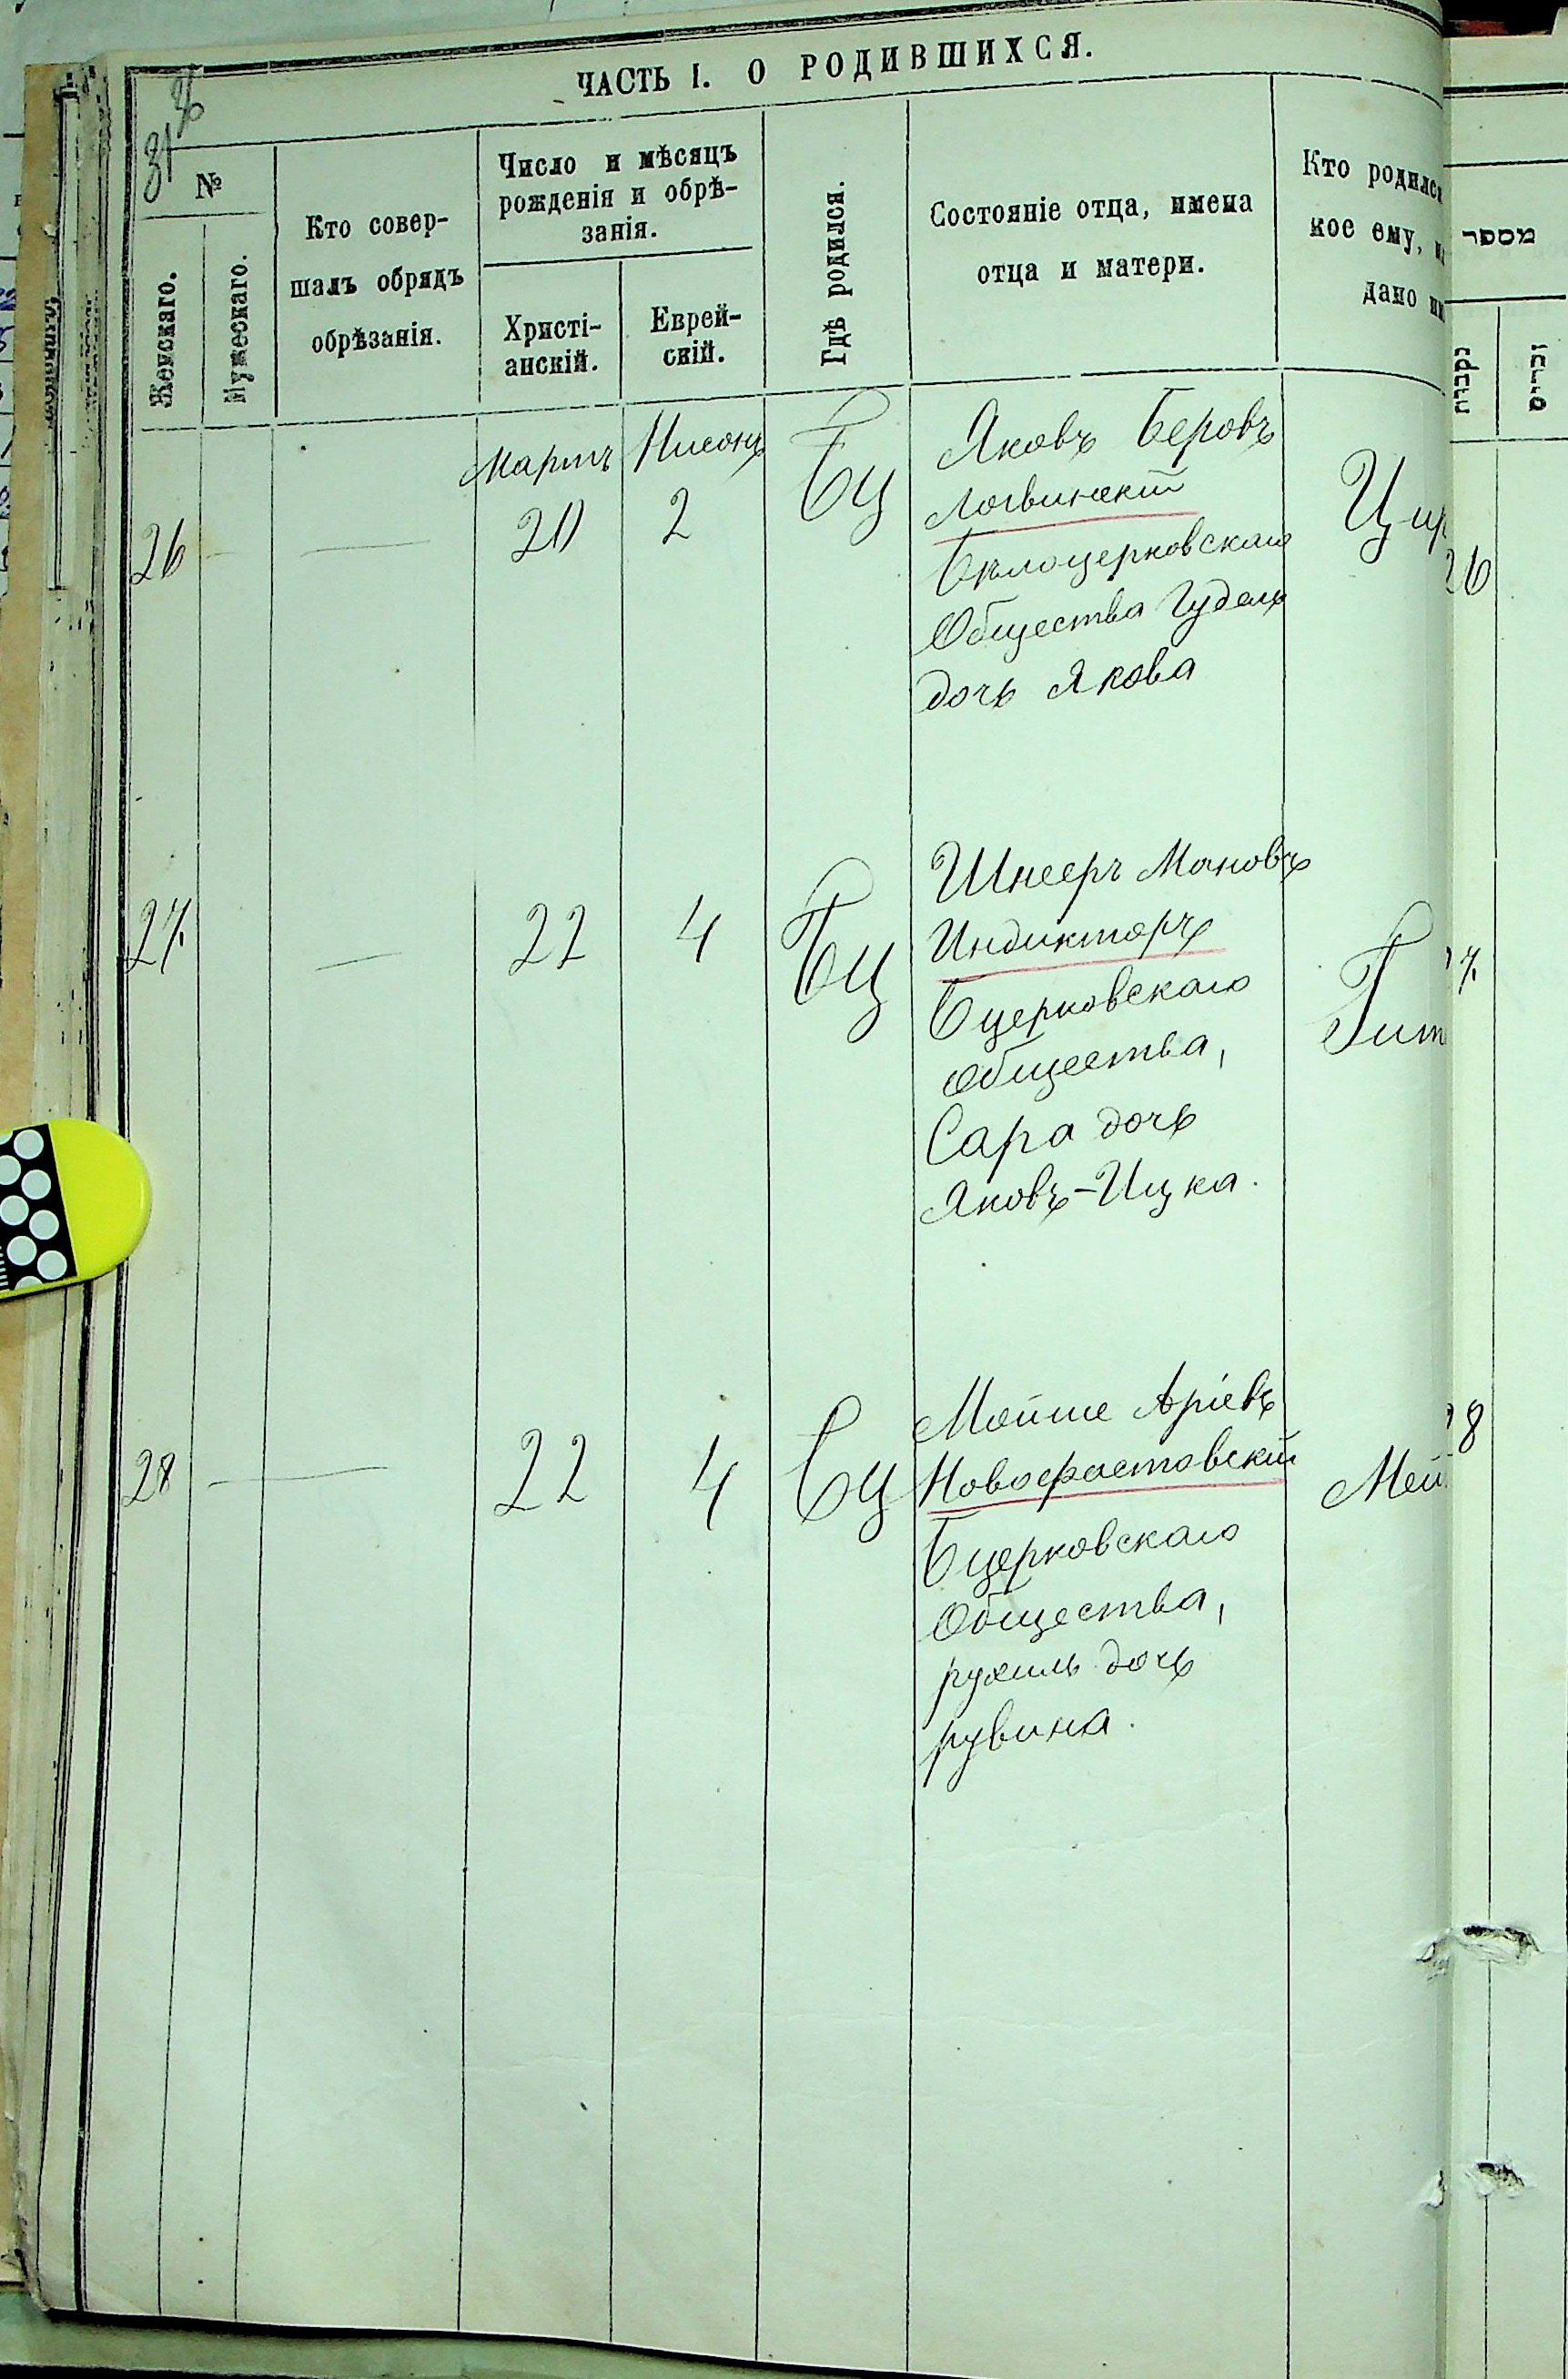 ЧАСТЬ I. О РОДИВШИХСЯ.
31
№
Женскаго.
Мужескаго.
Кто совер-
шалъ обрядъ
обрѣзанія.
Число и мѣсяцъ
рожденія и обрѣ-
занія.
Христі-
анскій.
Еврей-
скій.
Гдѣ родился.
Состояніе отца, имена
отца и матери.
Кто родился
кое ему, и
дано
מספר
נקבות
זכרים
Мартъ
Нисонъ
26
—
20
2
БЦ
Яковъ Беровъ
Логвинскій
Бѣлоцерковскаго
Общества Гудель
дочь Якова
Цир
26
27.
—
22
4
БЦ
Шнееръ Мановъ
Индикторъ
Бцерковскаго
общества,
Сара дочь
Яковъ-Ицка.
Гит
7.
28
—
22
4
БЦ
Мойше Аріевъ
Новофастовскій
Бцерковскаго
Общества,
рухиль дочь
рувина.
Мей
8